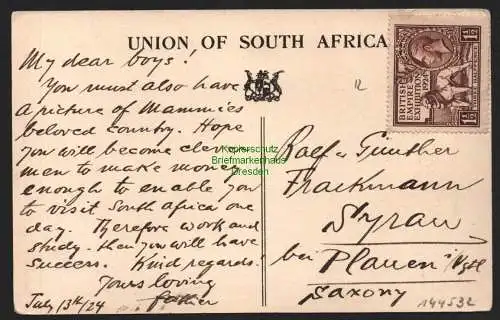 UNION OF SOUTH AFRICA
My dear boys!
You must also have
a picture of Mammies
beloved country. Hope
you will become clever
men to make money
enough to enable you
to visit South africa one
day. Therefore work and
study. then you will have
success. Kind regards!
Yours loving
father
July 13th/24
BRITISH
EMPIRE
EXHIBITION
1924
1½
12
Kopierschutz
Briefmarkenhaus
Dresden
Ralf u Günther
Frackmann
Syrau
bei Plauen i/Vgtl
Saxony
144532